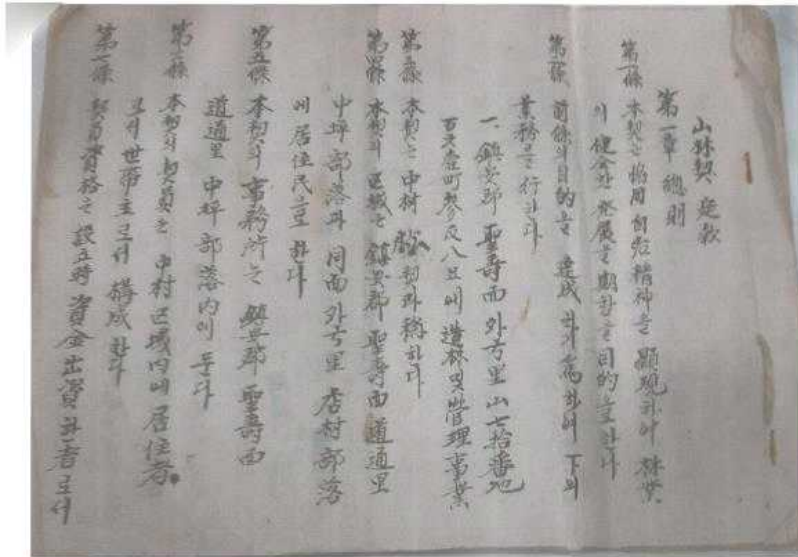 山林契 定款
第一章 總則
第一條 本契는 協同 自助精神을 顯現하야 林業
의 健全한 発展을 期함을 目的으로 한다
第二條 前條의 目的을 達成하기 爲하여 下의
業務를 行한다
一. 鎭安郡 聖壽面 外弓里 山七拾番地
八畝에 造林 및 管理事業
第三條 本契는 中村 松契라 稱하다
第四條 本契의 区域는 鎭安郡 聖壽面 道通里
中坪部落과 同面 外弓里 店村部落
에 居住民으로 한다
第五條 本契의 事務所는 鎭安郡 聖壽面
道通里 中坪部落內에 둔다
第六條 本契의 契員는 中村区域內에 居住者
로서 世帶主로서 構成한다
第七條 契員資格는 設立時 資金出資한 者로서